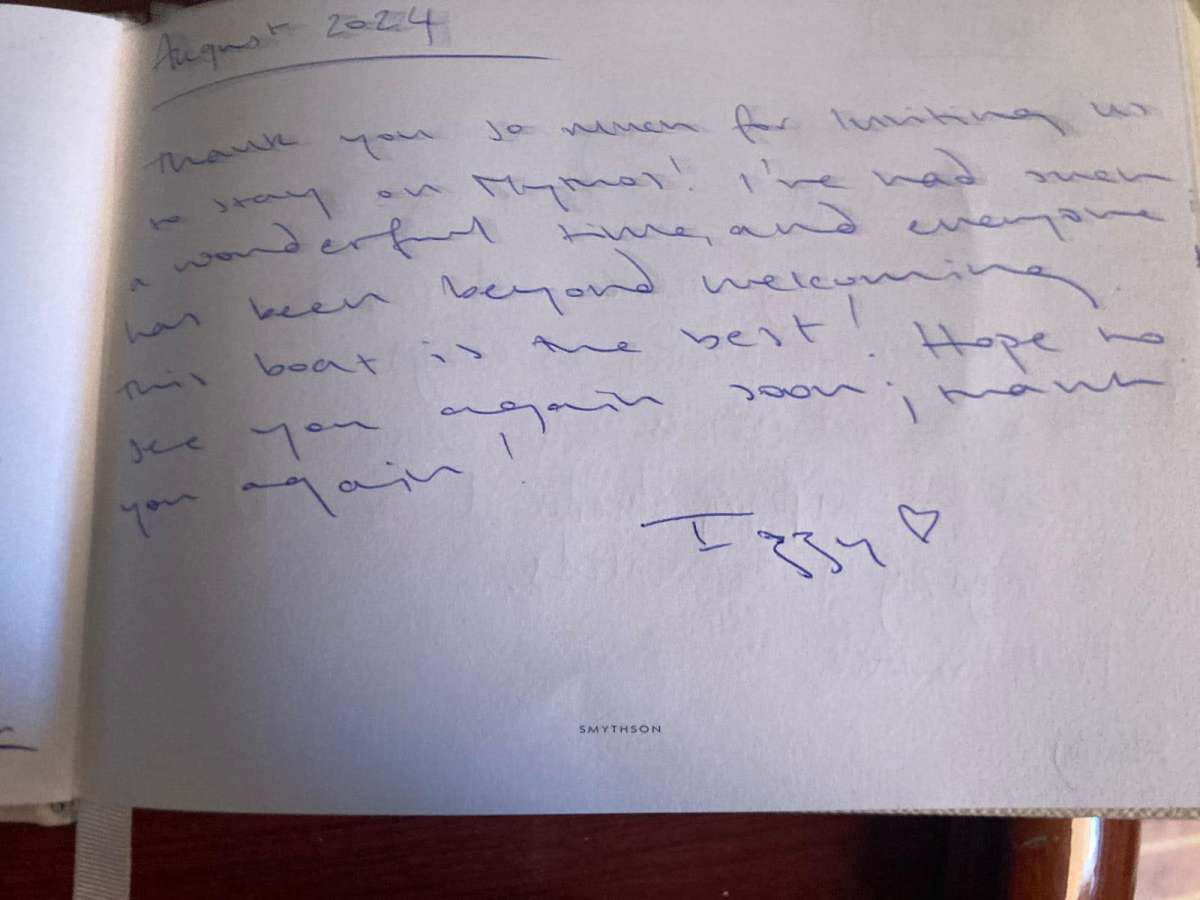 August 2024
Thank you so much for inviting us
to stay on Thymos! I've had such
a wonderful time, and everyone
has been beyond welcoming.
This boat is the best! Hope to
see you again soon; thank
you again!
Izzy ♡
SMYTHSON